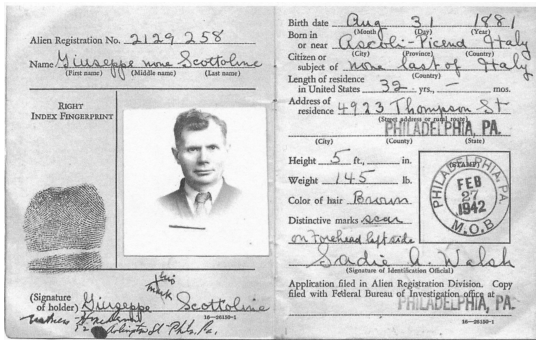 Alien Registration No. 2129 258
Name Giuseppe none Scottoline
(First name) (Middle name) (Last name)
RIGHT
INDEX FINGERPRINT
his
mark
(Signature
of holder) Giuseppe Scottoline
Arlington St Phila, Pa.
16—26150-1
Birth date Aug 31 1881
(Month) (Day) (Year)
Born in
or near Ascoli-Picend Italy
(City) (Province) (Country)
Citizen or
subject of none last of Italy
(Country)
Length of residence
in United States 32 yrs., — mos.
Address of
residence 4923 Thompson St
(Street address or rural route)
PHILADELPHIA, PA.
(City) (County) (State)
Height 5 ft., in.
Weight 145 lb.
Color of hair Brown
Distinctive marks scar
on Forehead left side
(STAMP)
PHILADELPHIA, PA.
FEB
27
1942
M.O.B
Sadie A. Walsh
(Signature of Identification Official)
Application filed in Alien Registration Division. Copy
filed with Federal Bureau of Investigation office at
PHILADELPHIA, PA.
16—26150-1